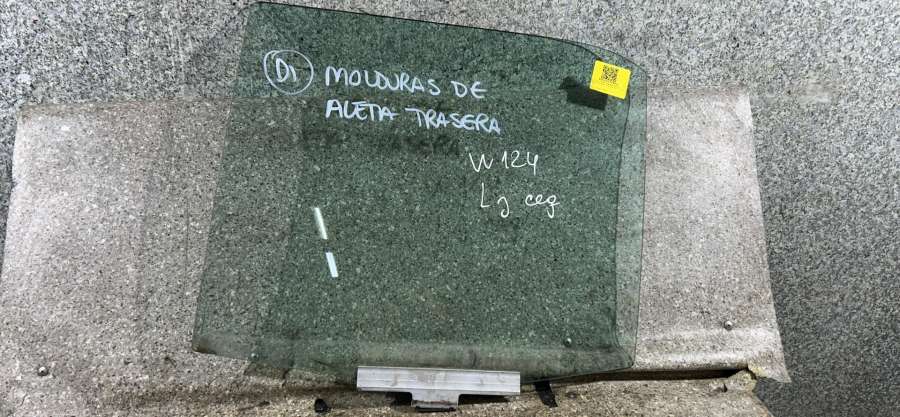 D1 MOLDURAS DE
ALETA TRASERA
W124